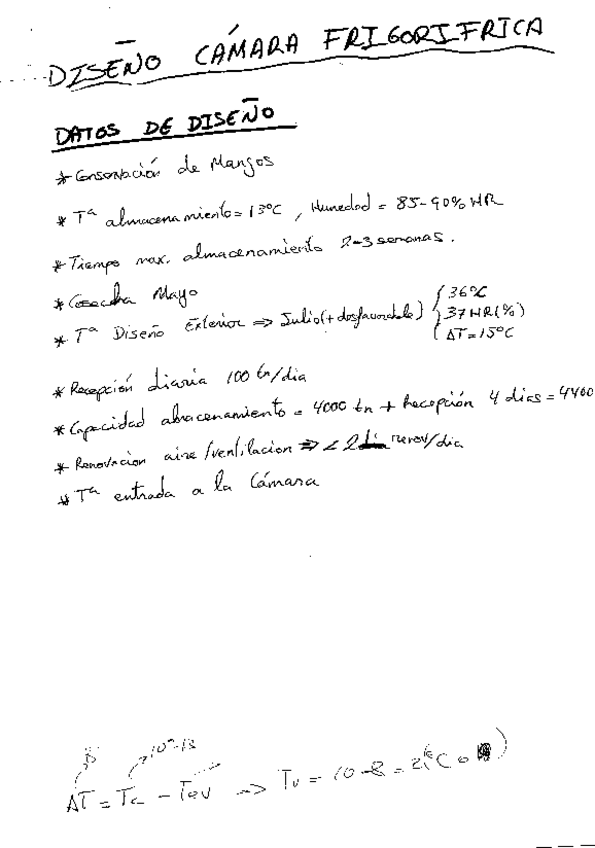 DISEÑO CÁMARA FRIGORIFRICA
DATOS DE DISEÑO
* Conservación de Mangos
* Tª almacenamiento = 13ºC , Humedad = 85-90% HR
* Tiempo max. almacenamiento 2-3 semanas.
* Cosecha Mayo
* Tª Diseño Exterior => Julio (+ desfavorable) { 36ºC
37 HR(%)
ΔT = 15ºC
* Recepción diaria 100 tn/dia
* Capacidad almacenamiento = 4000 tn + Recepción 4 dias = 4400
* Renovacion aire/ventilacion => < 2 renov/dia
* Tª entrada a la Cámara
10º-13
ΔT = Tc - Tev -> Tv = 10 - 8 = 2ºC o